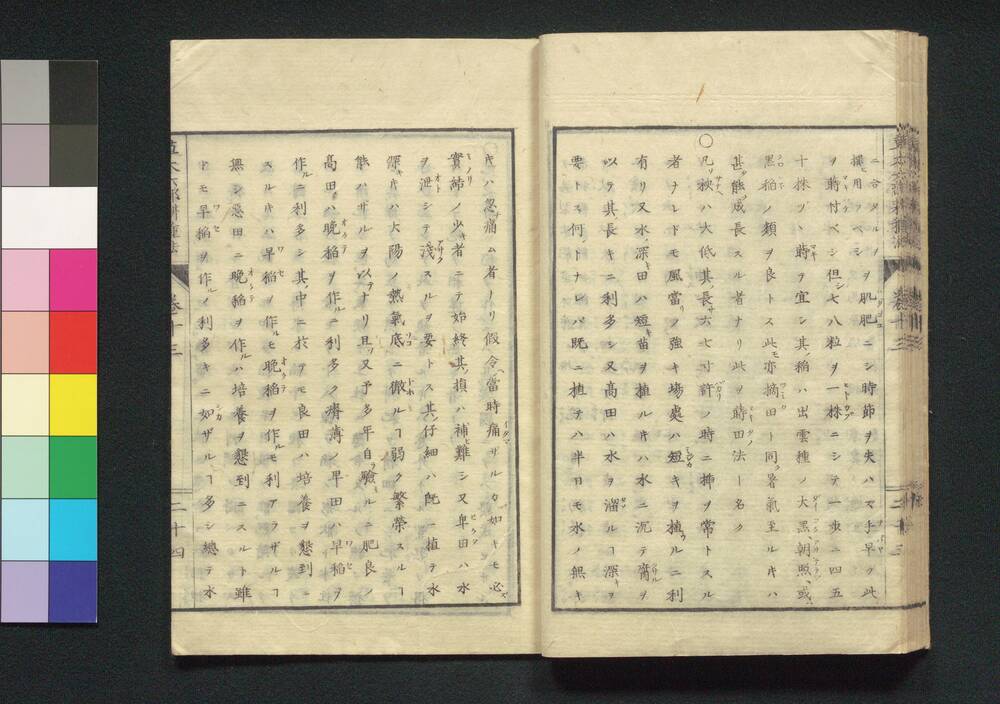 ニ合タルノヲ肌肥ニシ時節ヲ失ハズ手早ク此
撰ヒ用フベシ
ヲ蒔付ベシ但シ七八粒ヲ一株ニシテ一步ニ四五
十株ヅヽ蒔ヲ宜シ其ノ稲ハ出雲種ノ大黒朝照或ハ
黒稲ノ類ヲ良トス此モ亦摘田ト同ク暑氣至ル𪜈ハ
甚ダ能ク成長スル者ナリ此ヲ蒔田法ト名ク
○凡ソ秧ハ大低其ノ長サ六七寸許ノ時ニ挿ヲ常トスル
者ナレドモ風當リノ強キ場處ハ短キヲ植ルニ利
有リ又水ノ深キ田ハ短キ苗ヲ植ルキハ水ニ沉テ腐ヲ
以テ其長キニ利多シ又高田ハ水ヲ溜ルヿ深キヲ
要トス何トナレバ既ニ植テハ半日モ水ノ無キ
𪜈ハ忽痛ム者ナリ假令當時痛ザルガ如キモ必ズ
實結ノ少キ者ニテ始終其ノ損ハ補ヒ難シ又卑田ハ水
ヲ泄シテ淺スルヲ要トス其仔細ハ既ニ植テ水
深キ𪜈ハ大陽ノ熱氣底ニ徹ルヿ弱ク繁榮スルヿ
能ハザルヲ以テナリ且ツ又予多年自ラ驗ルニ肥良ノ
高田ハ晩稲ヲ作ルニ利多ク瘠薄ノ早田ハ早稲ヲ
作ルニ利多シ其ノ中ニ於テモ良田ハ培養ヲ懇到ニ
スル𪜈ハ早稲ヲ作ルモ晩稲ヲ作ルモ利アラザルヿ
無シ惡田ニ晩稲ヲ作ルハ培養ヲ懇到ニスルト雖
ドモ早稲ヲ作ルノ利多キニ如ザルヿ多シ總テ水
卷十三
二十三
卷十三
二十四